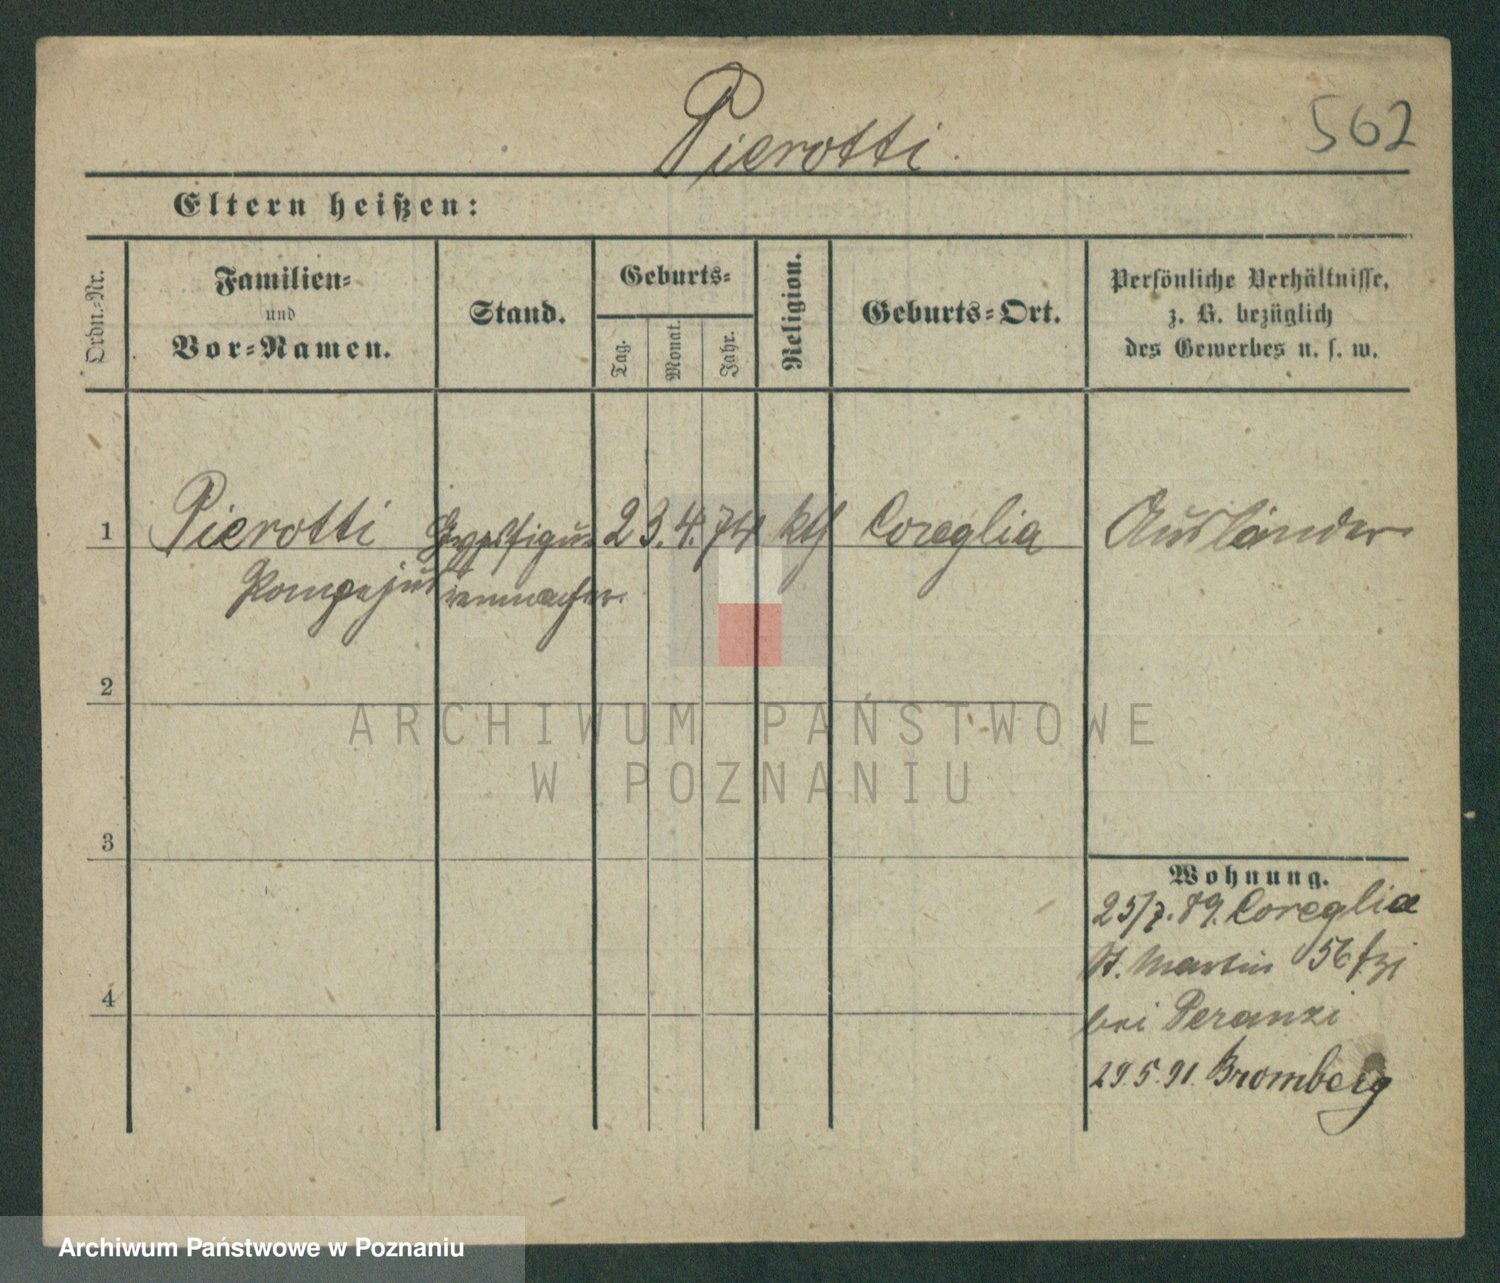 Pierotti.
562
Eltern heißen:
Ordn.-Nr.
Familien-
und
Vor-Namen.
Stand.
Geburts-
Tag.
Monat.
Jahr.
Religion.
Geburts-Ort.
Persönliche Verhältnisse,
z. B. bezüglich
des Gewerbes u. s. w.
1 Pierotti Gypsfigu- 23. 4. 74 kth Coreglia Ausländer
Pompejus renmacher.
2
ARCHIWUM PAŃSTWOWE
W POZNANIU
3
Wohnung.
25/7. 89. Coreglia
St. Martin 56
4
bei Peranzi
29.5.91. Bromberg
Archiwum Państwowe w Poznaniu